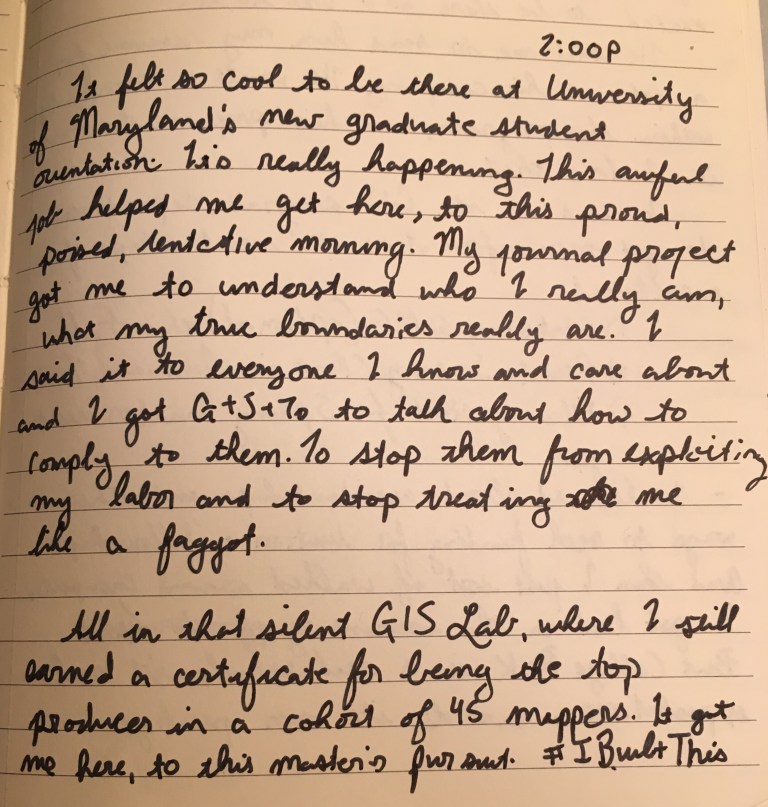 2:00P
It felt so cool to be there at University
of Maryland's new graduate student
orientation. It's really happening. This awful
job helped me get here, to this proud,
poised, tentative morning. My journal project
got me to understand who I really am,
what my true boundaries really are. I
said it to everyone I know and care about
and I got G+J+To to talk about how to
comply to them. To stop them from exploiting
my labor and to stop treating me
like a faggot.
All in that silent GIS Lab, where I still
earned a certificate for being the top
producer in a cohort of 45 mappers. It got
me here, to this master's pursuit. #IBuiltThis